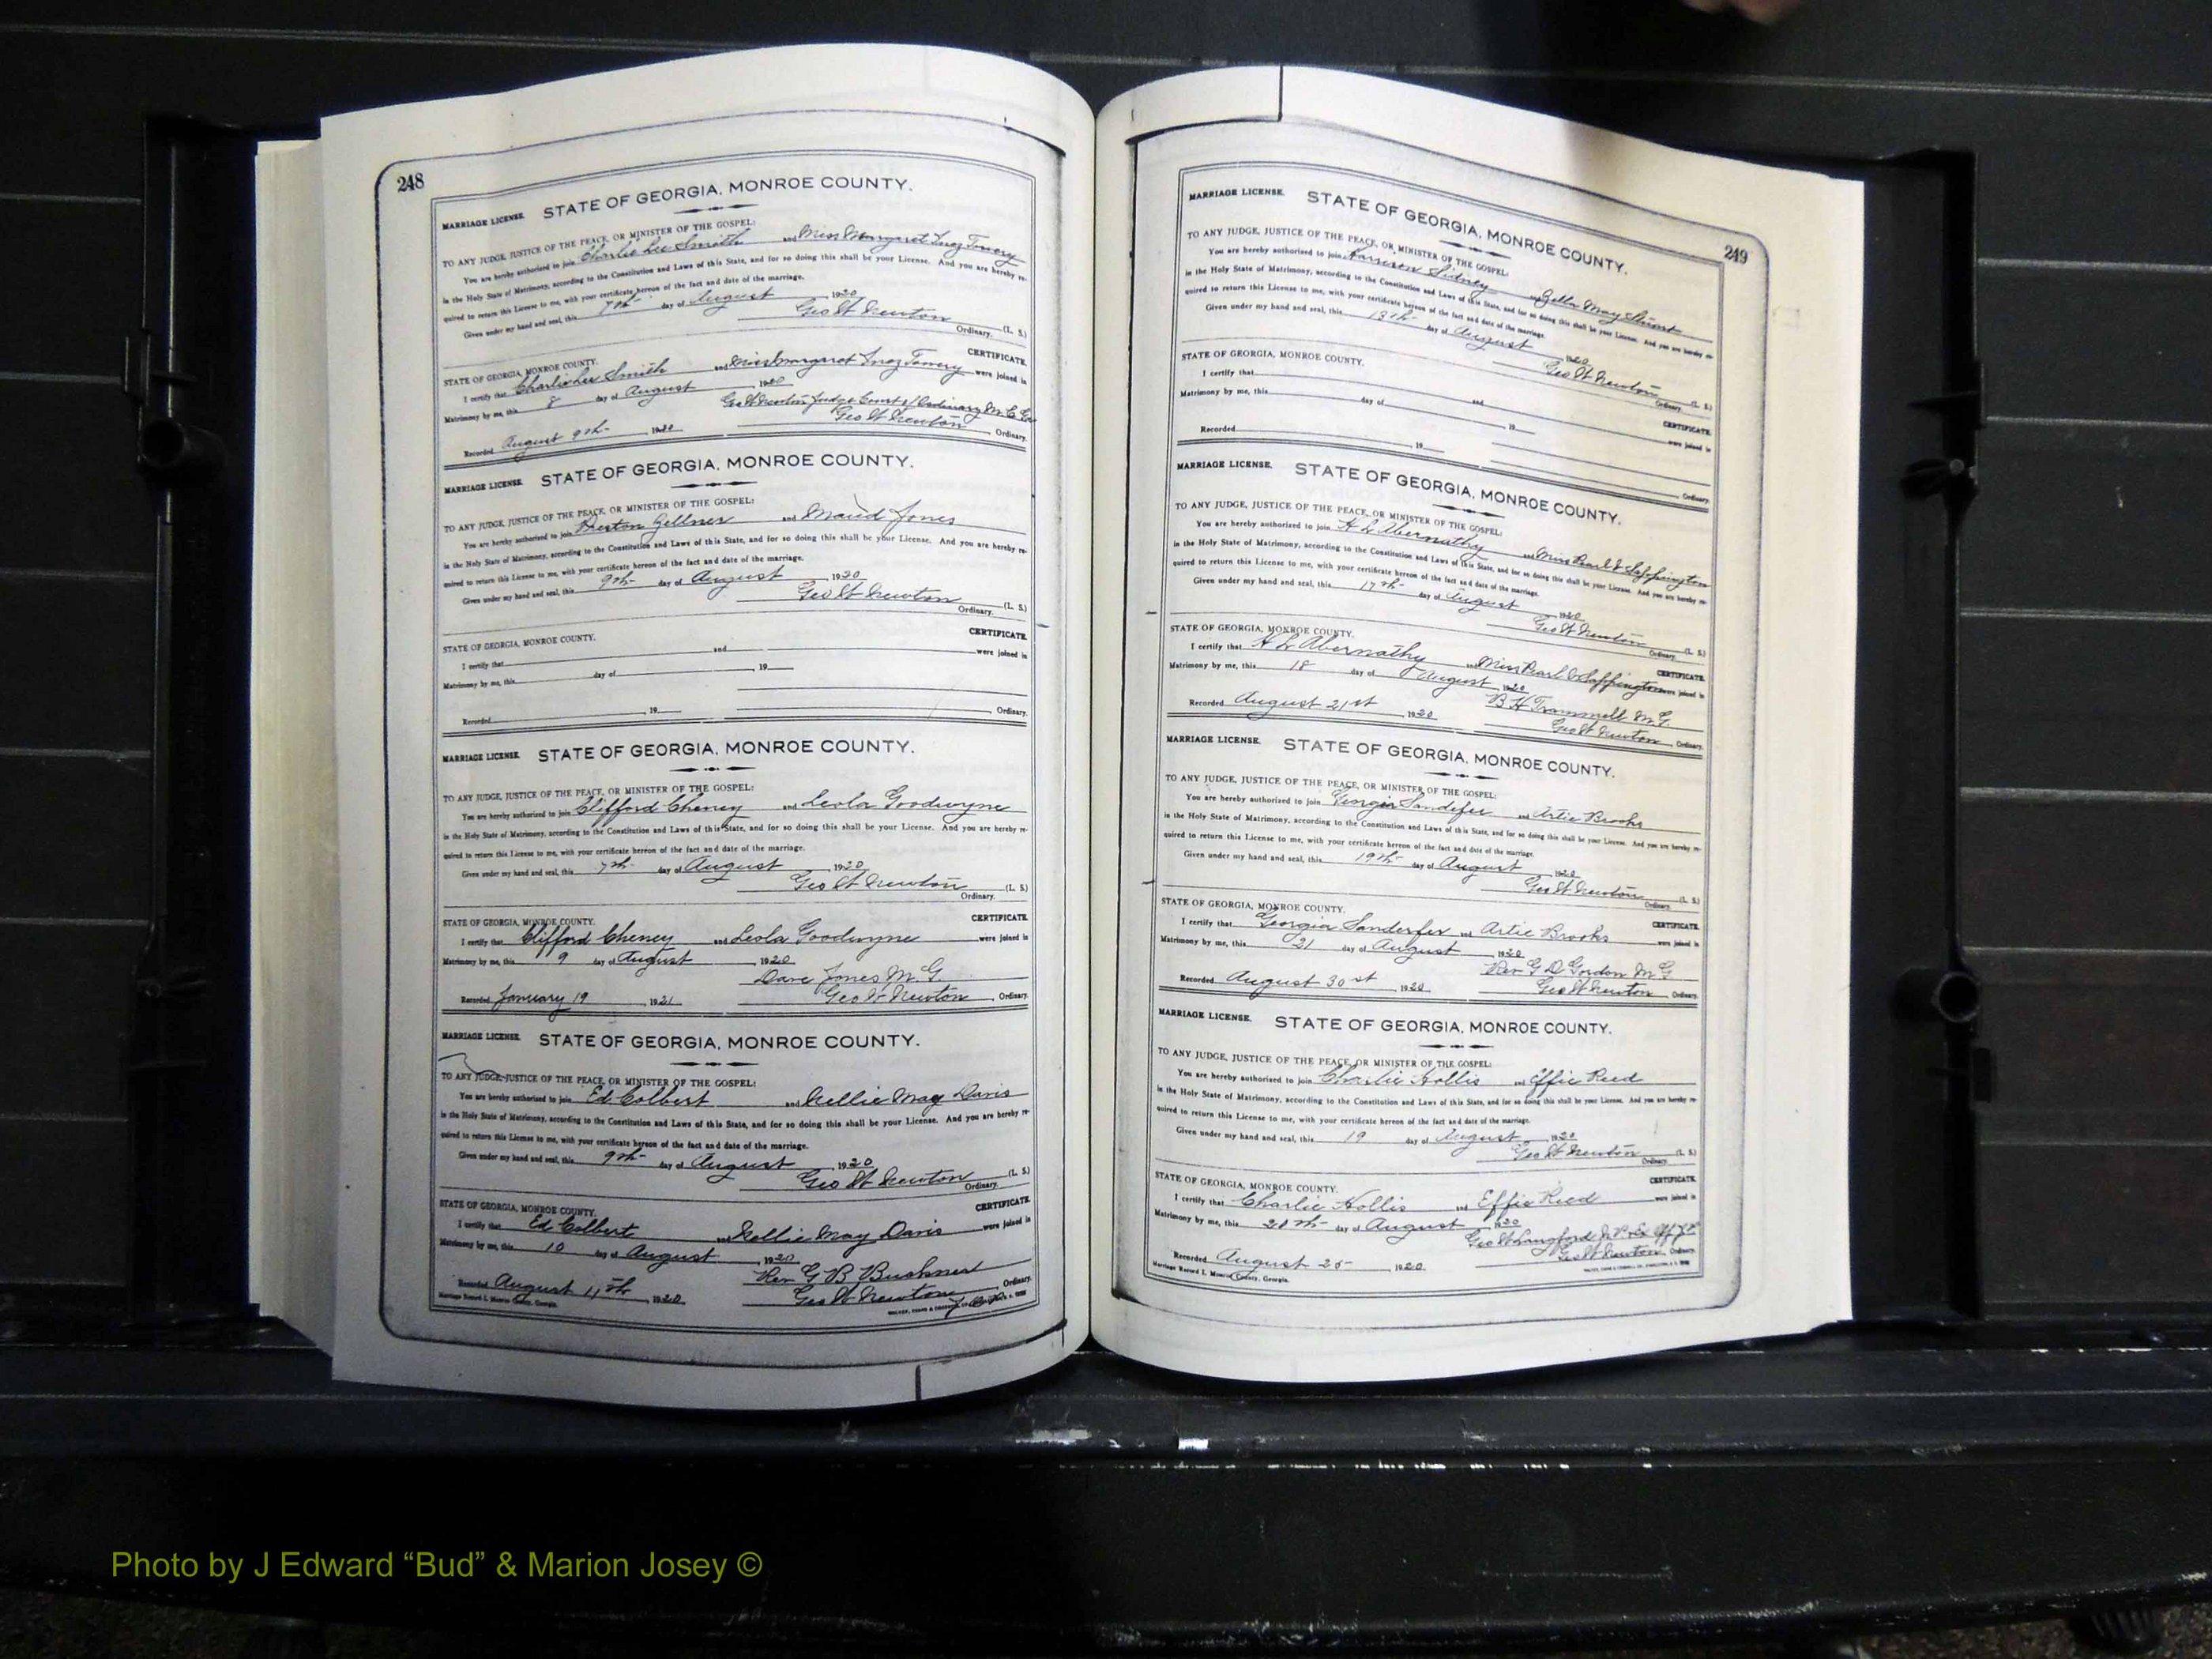 248
MARRIAGE LICENSE. STATE OF GEORGIA, MONROE COUNTY.
TO ANY JUDGE, JUSTICE OF THE PEACE, OR MINISTER OF THE GOSPEL:
You are hereby authorized to join Charlie Lee Smith and Miss Margaret Inez Towery
in the Holy State of Matrimony, according to the Constitution and Laws of this State, and for so doing this shall be your License. And you are hereby re-
quired to return this License to me, with your certificate hereon of the fact and date of the marriage.
Given under my hand and seal, this 7th day of August 1920
Geo W Newton (L. S.)
Ordinary.
STATE OF GEORGIA, MONROE COUNTY. CERTIFICATE.
I certify that Charlie Lee Smith and Miss Margaret Inez Towery were joined in
Matrimony by me, this 8 day of August 1920
Geo W Newton Judge Court of Ordinary M. C. Ga
Recorded August 9th 1920 Geo W Newton Ordinary.
MARRIAGE LICENSE. STATE OF GEORGIA, MONROE COUNTY.
TO ANY JUDGE, JUSTICE OF THE PEACE, OR MINISTER OF THE GOSPEL:
You are hereby authorized to join Preston Gellner and Maud Jones
in the Holy State of Matrimony, according to the Constitution and Laws of this State, and for so doing this shall be your License. And you are hereby re-
quired to return this License to me, with your certificate hereon of the fact and date of the marriage.
Given under my hand and seal, this 9th day of August 1920
Geo W Newton (L. S.)
Ordinary.
STATE OF GEORGIA, MONROE COUNTY. CERTIFICATE.
I certify that and were joined in
Matrimony by me, this day of 19
Recorded 19 Ordinary.
MARRIAGE LICENSE. STATE OF GEORGIA, MONROE COUNTY.
TO ANY JUDGE, JUSTICE OF THE PEACE, OR MINISTER OF THE GOSPEL:
You are hereby authorized to join Clifford Cheney and Leola Goodwyne
in the Holy State of Matrimony, according to the Constitution and Laws of this State, and for so doing this shall be your License. And you are hereby re-
quired to return this License to me, with your certificate hereon of the fact and date of the marriage.
Given under my hand and seal, this 7th day of August 1920
Geo W Newton (L. S.)
Ordinary.
STATE OF GEORGIA, MONROE COUNTY. CERTIFICATE.
I certify that Clifford Cheney and Leola Goodwyne were joined in
Matrimony by me, this 9 day of August 1920
Dave Jones M. G
Recorded January 19 1921 Geo W Newton Ordinary.
MARRIAGE LICENSE. STATE OF GEORGIA, MONROE COUNTY.
TO ANY JUDGE, JUSTICE OF THE PEACE, OR MINISTER OF THE GOSPEL:
You are hereby authorized to join Ed Colbert and Nellie May Davis
in the Holy State of Matrimony, according to the Constitution and Laws of this State, and for so doing this shall be your License. And you are hereby re-
quired to return this License to me, with your certificate hereon of the fact and date of the marriage.
Given under my hand and seal, this 9th day of August 1920
Geo W Newton (L. S.)
Ordinary.
STATE OF GEORGIA, MONROE COUNTY. CERTIFICATE.
I certify that Ed Colbert and Nellie May Davis were joined in
Matrimony by me, this 10 day of August 1920
Rev G B Buckner
Recorded August 11th 1920 Geo W Newton Ordinary.
Marriage Record I, Monroe County, Georgia.
249
MARRIAGE LICENSE. STATE OF GEORGIA, MONROE COUNTY.
TO ANY JUDGE, JUSTICE OF THE PEACE, OR MINISTER OF THE GOSPEL:
You are hereby authorized to join Harrison Sidney and May
in the Holy State of Matrimony, according to the Constitution and Laws of this State, and for so doing this shall be your License. And you are hereby re-
quired to return this License to me, with your certificate hereon of the fact and date of the marriage.
Given under my hand and seal, this 13th day of August 1920
Geo W Newton (L. S.)
Ordinary.
STATE OF GEORGIA, MONROE COUNTY. CERTIFICATE.
I certify that and were joined in
Matrimony by me, this day of 19
Recorded 19 Ordinary.
MARRIAGE LICENSE. STATE OF GEORGIA, MONROE COUNTY.
TO ANY JUDGE, JUSTICE OF THE PEACE, OR MINISTER OF THE GOSPEL:
You are hereby authorized to join H L Abernathy and Miss Pearl E Sappington
in the Holy State of Matrimony, according to the Constitution and Laws of this State, and for so doing this shall be your License. And you are hereby re-
quired to return this License to me, with your certificate hereon of the fact and date of the marriage.
Given under my hand and seal, this 17th day of August 1920
Geo W Newton (L. S.)
Ordinary.
STATE OF GEORGIA, MONROE COUNTY. CERTIFICATE.
I certify that H L Abernathy and Miss Pearl E Sappington were joined in
Matrimony by me, this 18 day of August 1920
B H Trammell M. G.
Recorded August 21st 1920 Geo W Newton Ordinary.
MARRIAGE LICENSE. STATE OF GEORGIA, MONROE COUNTY.
TO ANY JUDGE, JUSTICE OF THE PEACE, OR MINISTER OF THE GOSPEL:
You are hereby authorized to join Georgia Sandefer and Artie Brooks
in the Holy State of Matrimony, according to the Constitution and Laws of this State, and for so doing this shall be your License. And you are hereby re-
quired to return this License to me, with your certificate hereon of the fact and date of the marriage.
Given under my hand and seal, this 19th day of August 1920
Geo W Newton (L. S.)
Ordinary.
STATE OF GEORGIA, MONROE COUNTY. CERTIFICATE.
I certify that Georgia Sanderfer and Artie Brooks were joined in
Matrimony by me, this 21 day of August 1920
Rev G D Gordon M G
Recorded August 30st 1920 Geo W Newton Ordinary.
MARRIAGE LICENSE. STATE OF GEORGIA, MONROE COUNTY.
TO ANY JUDGE, JUSTICE OF THE PEACE, OR MINISTER OF THE GOSPEL:
You are hereby authorized to join Charlie Hollis and Effie Reed
in the Holy State of Matrimony, according to the Constitution and Laws of this State, and for so doing this shall be your License. And you are hereby re-
quired to return this License to me, with your certificate hereon of the fact and date of the marriage.
Given under my hand and seal, this 19 day of August 1920
Geo W Newton (L. S.)
Ordinary.
STATE OF GEORGIA, MONROE COUNTY. CERTIFICATE.
I certify that Charlie Hollis and Effie Reed were joined in
Matrimony by me, this 20th day of August 1920
Geo W Langford J. P.
Recorded August 25 1920 Geo W Newton Ordinary.
Marriage Record I, Monroe County, Georgia.
Photo by J Edward “Bud” & Marion Josey ©